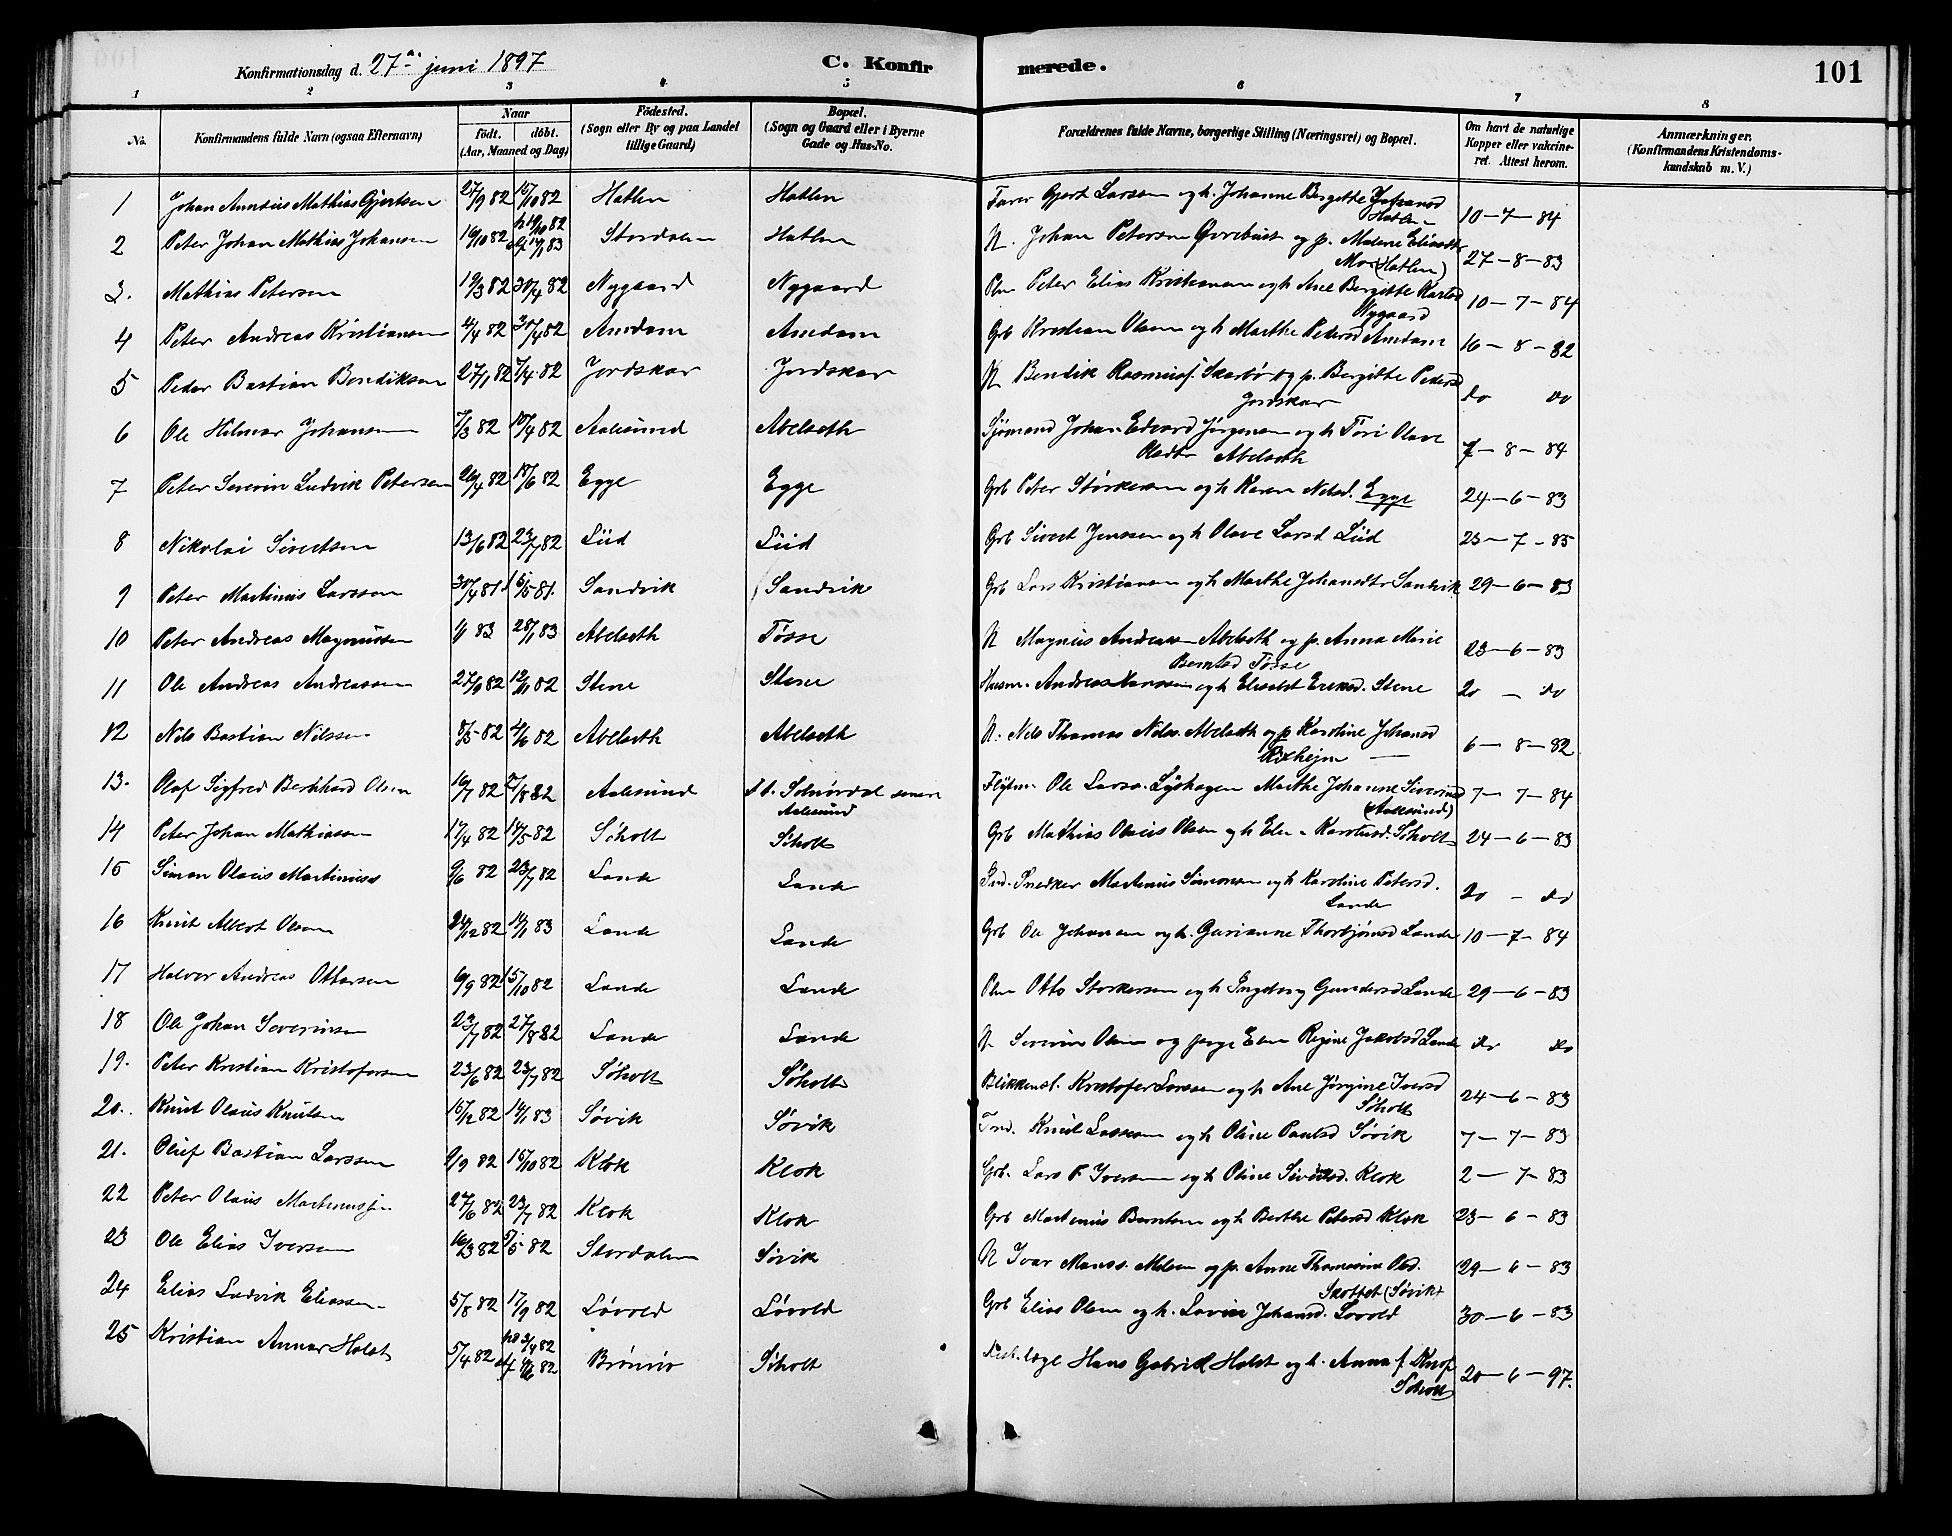 Konfirmationsdag d. 27de juni 1897 C. Konfirmerede. 101
1 2 3 4 5 6 7 8
No. Konfirmandens fulde Navn (ogsaa Efternavn) Naar födt. döbt. (Aar, Maaned og Dag) Födested. (Sogn eller By og paa Landet tillige Gaard) Bopæl. (Sogn og Gaard eller i Byerne Gade og Hus-No.) Forældrenes fulde Navne, borgerlige Stilling (Næringsvei) og Bopæl. Om havt de naturlige Kopper eller vakcineret. Attest herom. Anmærkninger. (Konfirmandens Kristendomskundskab m. V.)
1 Johan Mathias Gjertsen 27/9 82 15/10 82 Hatlen Hatlen Gjert Larssen og h. Johanne Bergitte Hatlen 10-7-84
2 Peter Johan Mathias Johansen 16/10 82 Stordalen Hatlen N. Johan Petersen og p. Malene Eliasdtr (Hatlen) 27-8-83
3. Mathias Petersen 19/3 82 30/4 82 Nygaard Nygaard Peter Elias Kristiansen og h Ane Bergitte Nygaard 10-7-84
4 Peter Andreas Kristiansen 4/4 82 30/4 82 Amdam Amdam Grb Kristian Olsen og h Marthe Petersd Amdam 16-8-82
5 Peder Bastian Bendiksen 27/1 82 7/4 82 Jordskar Jordskar N Bendik Rasmuss. Skarbø og p. Bergitte Pedersd Jordskar do do
6 Ole Hilmar Johansen 7/3 82 10/4 82 Aalesund Abelseth Sjømand Johan Edvard Jørgensen og h Olave Olsdtr Abelseth 7-8-84
7 Peter Severin Ludvik Petersen 26/4 82 18/6 82 Egge Egge Grb Peter Størkersen og h Karen Nelsd. Egge 24-6-83
8 Nikolai Sivertsen 13/6 82 23/7 82 Liid Liid Grb Sivert Jenssen og h Olave Larsd Liid 23-7-85
9 Peter Martinus Larssen 30/4 81 15/5 81. Sandvik Sandvik Grb Lars Kristiansen og h Marthe Johansdtr Sandvik 29-6-83
10 Peter Andreas Magnussen 1/1 83 28/1 83 Abelseth Tøsse N Magnus Andreassen Abelseth og p. Anna Marie Berntsd Tøsse 23-6-83
11 Ole Andreas Andreassen 27/9 82 12/11 82 Stene Stene Husm. Andreas Hanssen og h Elisabet Eriksd. Stene do - do
12 Nils Bastian Nilssen 8/5 82 4/6 82 Abelseth Abelseth N. Nils Thomas Nilss. Abelseth og p Karoline Johansd Rixhejm 6-8-82
13. Olaf Sigfred Bernhard Olsen 16/7 82 27/8 82 Aalesund Solnørdal senere Aalesund Ole Larss. Marthe Johanne Siverinsd (Aalesund) 7-7-84
14 Peter Johan Mathiassen 17/4 82 14/5 82 Søholt Søholt Grb Mathias Olaus Olsen og h Elen Karstensd. Søholt 24-6-83
15 Simon Olaus Martinuss 9/6 82 23/7 82 Lande Lande Ind. Snedker Martinus Simonsen og h Karoline Petersd. Lande do - do
16 Knut Albert Olsen 24/12 82 14/1 83 Lande Lande Grb Ole Johansen og h. Gurianne Thorbjørnsd Lande 10-7-84
17 Halvor Andreas Ottersen 6/9 82 15/10 82 Lande Lande Otto Storkersen og h Ingeborg Gundersd Lande 29-6-83
18 Ole Johan Severinsen 23/7 82 27/8 82 Lande Lande N. Severin Olsen og pige Elen Regine Jakobsd Lande do do
19. Peter Kristian Kristofersen 23/6 82 23/7 82 Søholt Søholt Blikkensl. Kristofer Larssen og h Ane Jørgine Iversd Søholt 24-6-83
20. Knut Olaus Knutsen 16/12 82 14/1 83 Søvik Søvik Ind. Knut Lassesen og h Oline Paulsd Søvik 7-7-83
21. Oluf Bastian Larssen 9/9 82 15/10 82 Klok Klok Grb. Lars P Iversen og h Oline Sivertsd. Klok 2-7-83
22 Peter Olaus Martinussen 27/6 82 23/7 82 Klok Klok Grb Martinus Berntsen og h Berthe Petersd Klok 23-6-83
23 Ole Elias Iversen 16/3 82 7/5 82 Stordalen Søvik N Ivar Monss. Melsen og p. Anne Thomasine Olsd. Skottet (Søvik) 29-6-83
24 Elias Ludvik Eliassen 5/8 82 17/9 82 Løvold Løvold Grb Elias Olsen og h. Lovise Johansd. Løvold 30-6-83
25 Kristian Annar Holst 5/4 82 Brønnø Søholt Distr.læge Hans Gabriel Holst og h. Anna f. Knof Søholt 20-6-97.